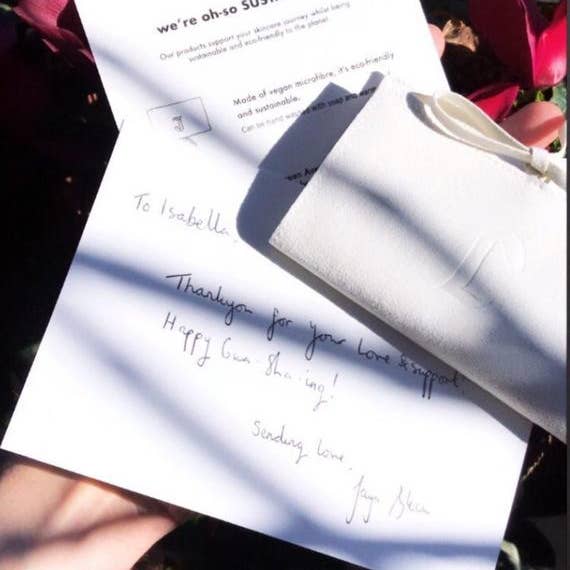 we're oh-so
Our products support your skincare journey whilst being
sustainable and eco-friendly to the planet
Made of vegan microfibre, it's eco-friendly
and sustainable.
Can be hand washed with soap and warm
To Isabella,
Thankyou for your Love & support!
Happy Gua-Sha-ing!
Sending Love,